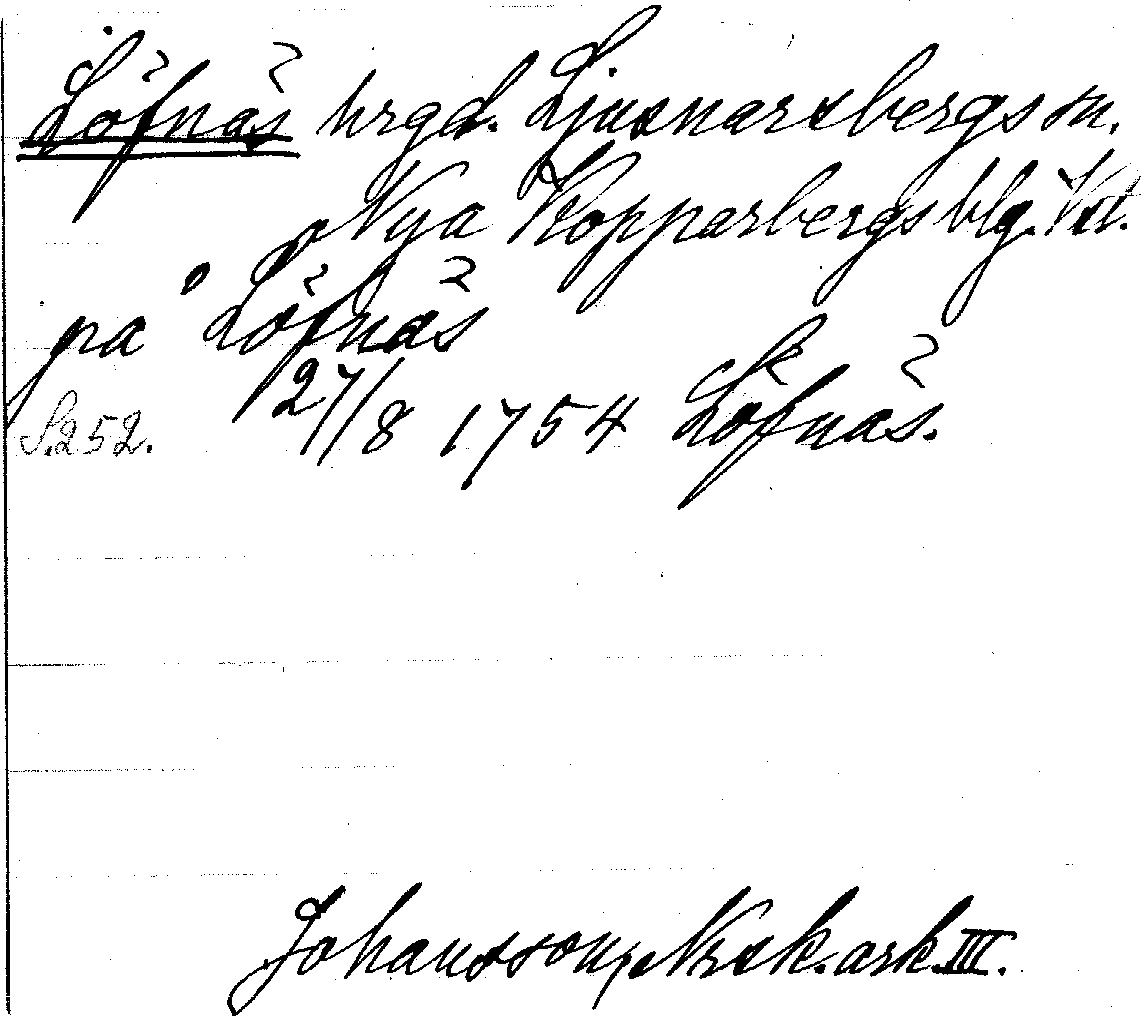 Löfnäs hrgd. Ljusnarsbergs sn.
Nya Kopparbergs blg. Vstl.
på Löfnäs
S.252. 27/8 1754 Löfnäs.
Johansson, Nrsk. ark. III.